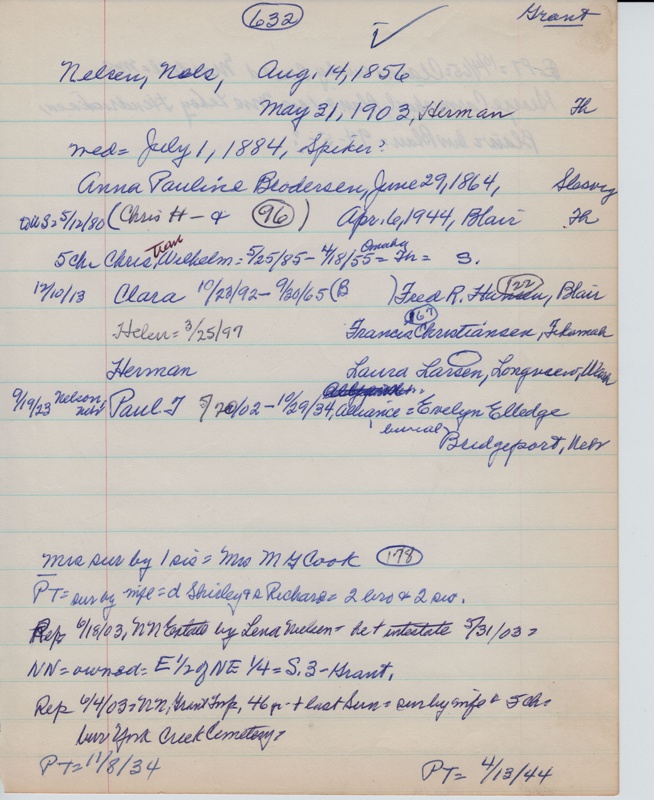 632
Grant
Nelsen, Nels, Aug. 14, 1856
May 31, 1903, Herman Th
med= July 1, 1884, Spiker?
Anna Pauline Brodersen, June 29, 1864, Slesvig
5/12/80 (Chris H - & 96) Apr. 6, 1944, Blair Th
5 ch Chris, Wilhelm = 5/25/85 - 4/18/55 = Omaha Th = S.
12/10/13 Clara 10/23/92 - 9/30/65 (B ) Fred R. Hansen, 122 Blair
Helen = 3/25/97 Francis Christiansen, 167 Tekamah
Herman Laura Larsen, Longview, Wash
9/19/23 Nelson, Paul T /02 - 10/29/34, Alliance = Evelyn Elledge
burial Bridgeport, Nebr
Mrs sur by 1 sis = Mrs M G Cook 178
PT = sur by mfe = d Shirley & s Richard = 2 bro & 2 sis.
Rep 6/18/03, NN Estate by Lena Nielsen = het intestate 5/31/03 =
NN = owned = E 1/2 of NE 1/4 = S. 3 - Grant.
Rep 6/4/03 = NN, Grant Twp, 46 yr - + last Sun = sur by mfe & 5 ch =
bur York Creek Cemetery =
PT = 11/8/34 PT = 4/13/44